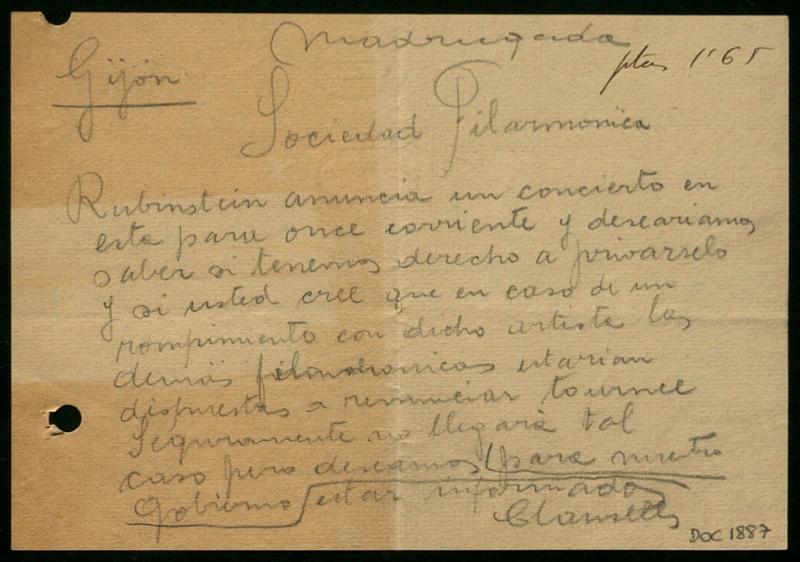 Madrugada
Gijón
ptas 1'65
Sociedad Filarmonica
Rubinstein anuncia un concierto en
esta para once corriente y deseariamos
saber si tenemos derecho a privarselo
y si usted cree que en caso de un
rompimiento con dicho artista las
demás filarmonicas estarian
dispuestas a renunciar tournee
Seguramente no llegará tal
caso pero deseamos para nuestro
Gobierno estar informados
Clausells
DOC 1887